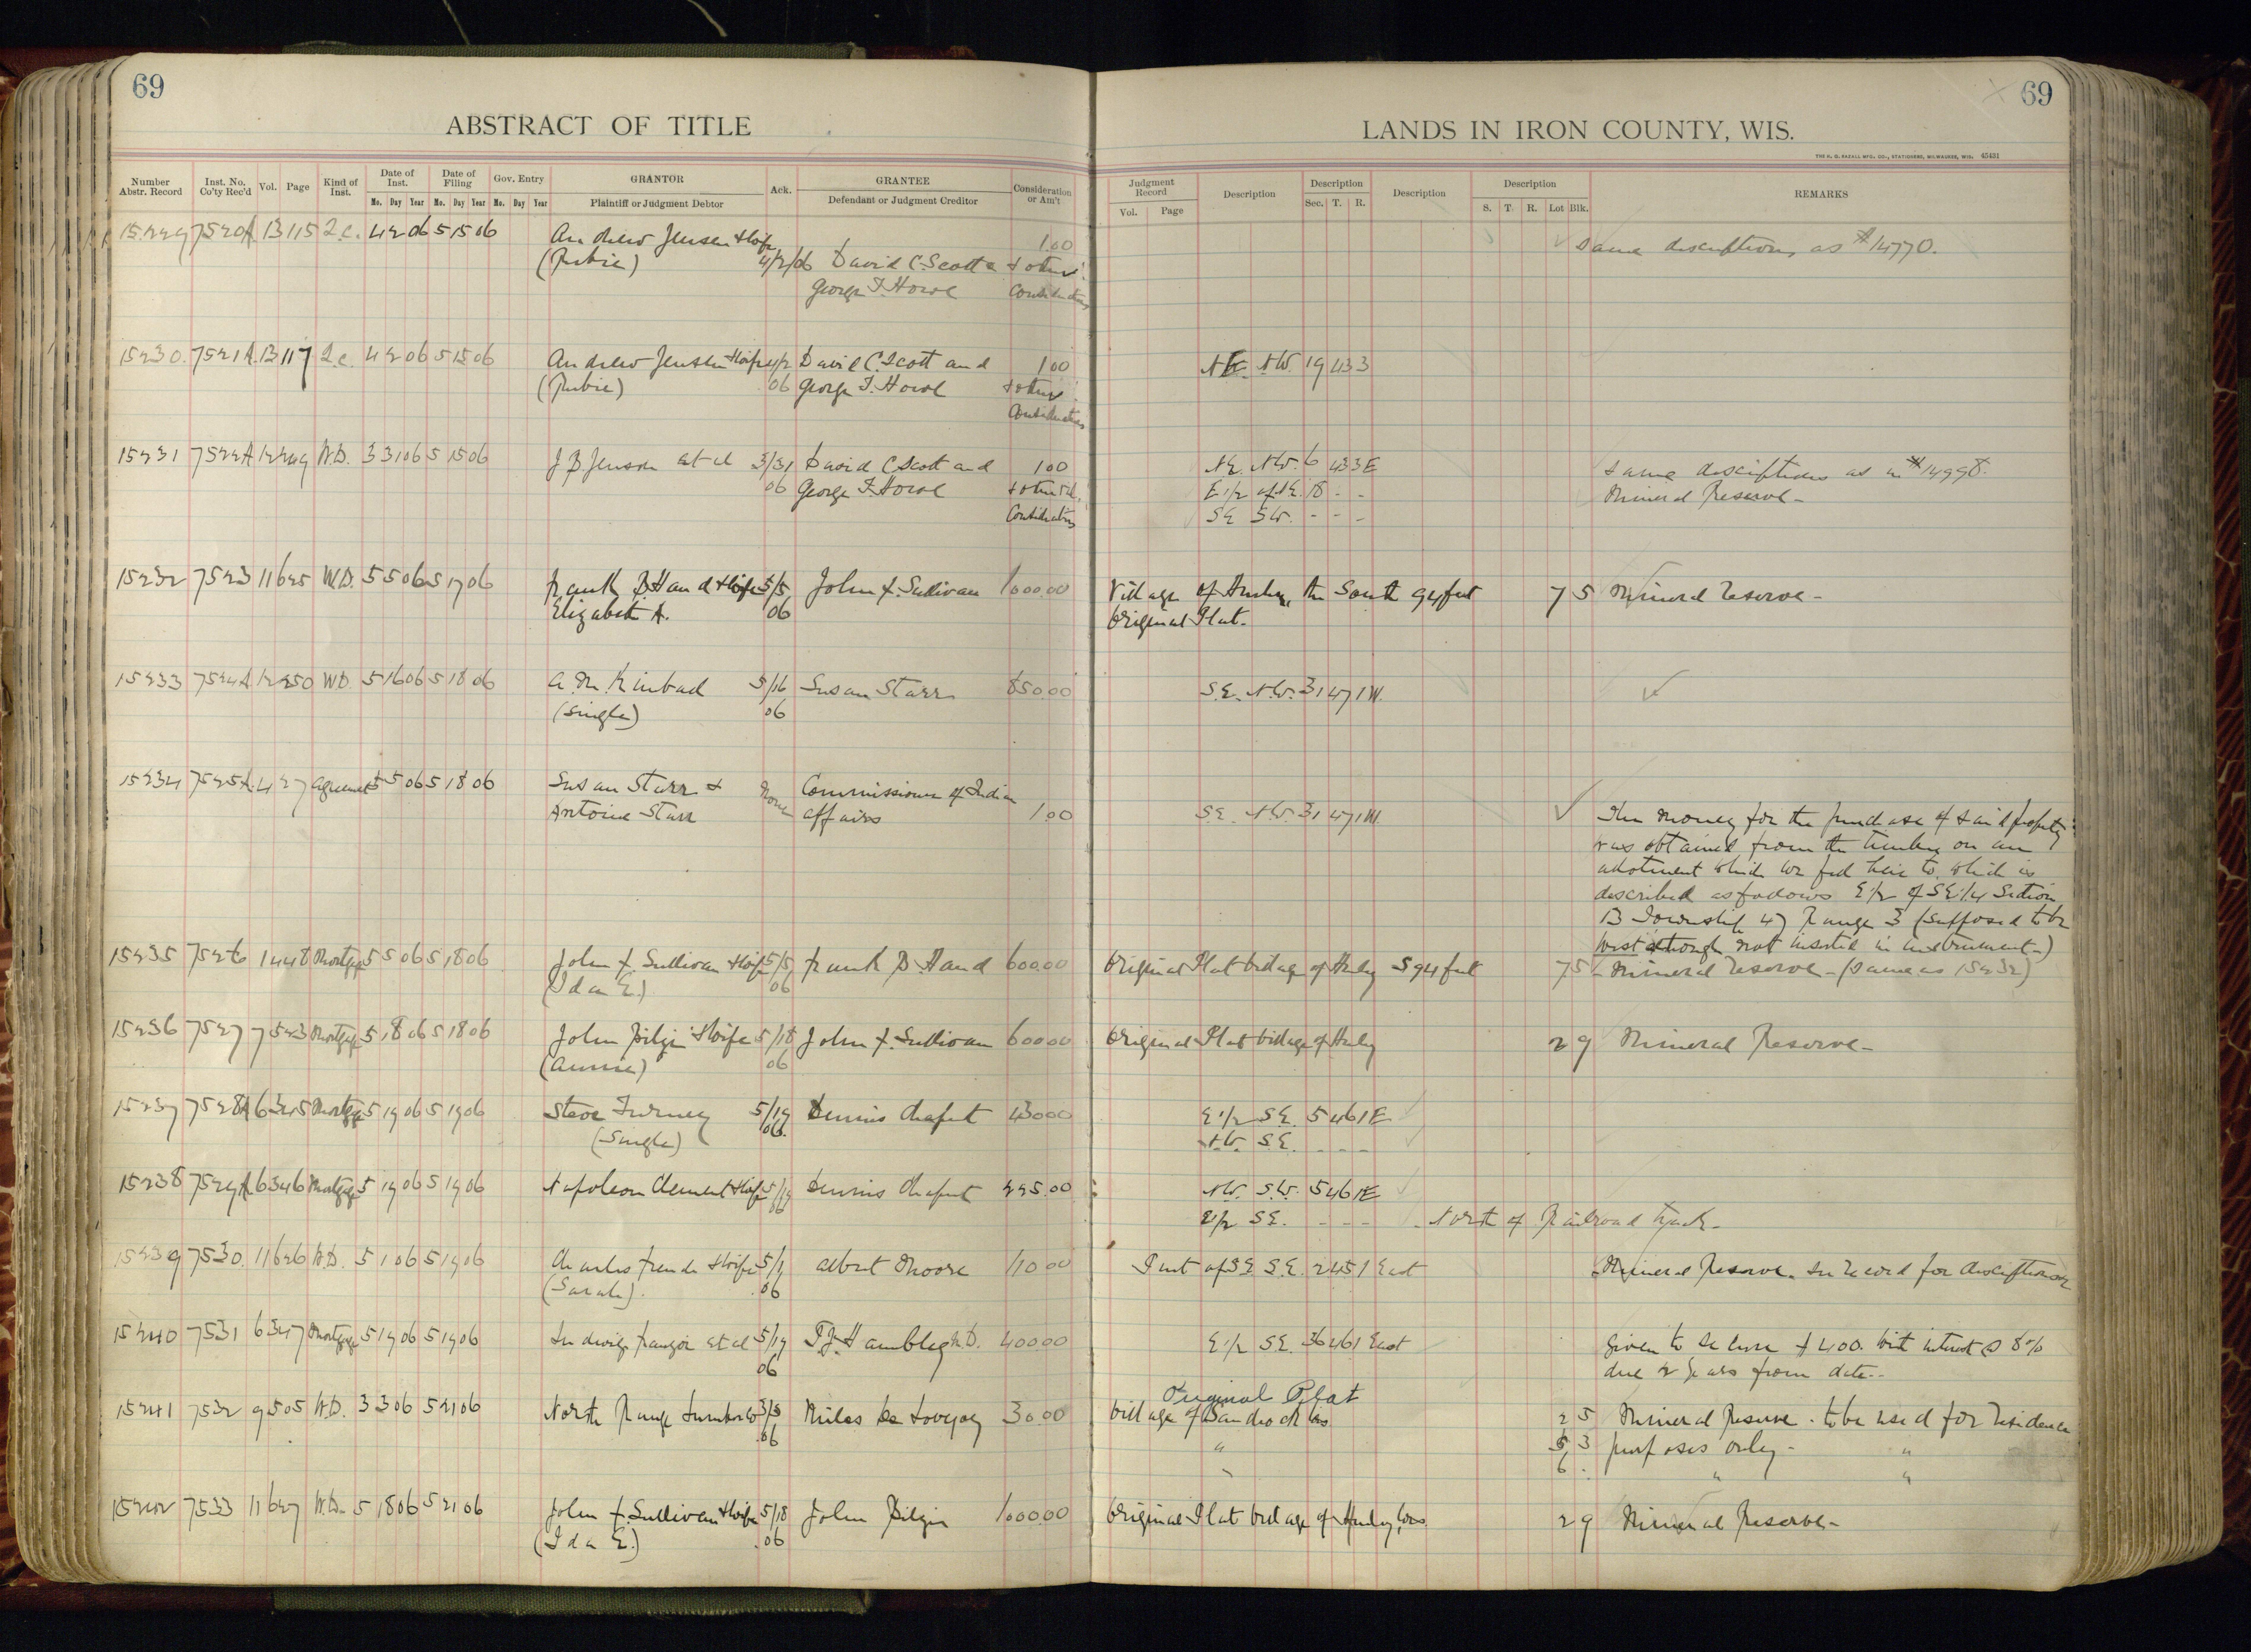 69
ABSTRACT OF TITLE
69
LANDS IN IRON COUNTY, WIS.
THE H. G. RAZALL MFG. CO., STATIONERS, MILWAUKEE, WIS. 45431
Number Abstr. Record Inst. No. Co'ty Rec'd Vol. Page Kind of Inst. Date of Inst. Date of Filing Gov. Entry GRANTOR Ack. GRANTEE Consideration or Am't Judgment Record Description Description Description Description REMARKS
Mo. Day Year Mo. Day Year Mo. Day Year Plaintiff or Judgment Debtor Defendant or Judgment Creditor Vol. Page Sec. T. R. S. T. R. Lot Blk.
15229 7520A 13 115 Q.C. 4 2 06 5 15 06 Andrew Jensen & wife 1.00 Same description as #14770.
(Rubie) 4/2/06 David C. Scott & & other
George T. Howe Consideration
15230 7521A 13 117 Q.C. 4 2 06 5 15 06 Andrew Jensen & wife 4/2 David C. Scott and 1.00 NW. 19 43 3
(Rubie) 06 George T. Howe & other
Consideration
15231 7522A 12 249 W.D. 3 31 06 5 15 06 J B Jensen et al 3/31 David C. Scott and 1.00 NE. NW. 6 43 3E Same descriptions as in #14998.
06 George T. Howe & other E 1/2 of NE. 18 - - Mineral Reserve -
Consideration SE SW. - - -
15232 7523 11 625 W.D. 5 5 06 5 17 06 Frank B. Hand & wife 5/5 John F. Sullivan 1000.00 Village of Hurley, the South 94 feet 7 5 Mineral Reserve -
Elizabeth A. 06 Original Plat.
15233 7524A 12 250 W.D. 5 16 06 5 18 06 A. M. 5/16 Susan Starr 850.00 S.E. N.W. 31 47 1 W.
(Single) 06
15234 7525A 4 27 Agreement 5 5 06 5 18 06 Susan Starr & None Commissioner of Indian
Antoine Starr affairs 1.00 S.E. N.W. 31 47 1 W. The money for the purchase of said property
was obtained from the timber on an
allotment which we fell heir to which is
described as follows E 1/2 of SE 1/4 Section
13 Township 47 Range 3 (Supposed to be
West although not inserted in instrument -)
15235 7526 1 448 Mortgage 5 5 06 5 18 06 John F. Sullivan & wife 5/5 Frank B. Hand 600.00 Original Plat Village of Hurley S 94 feet 7 5 - Mineral Reserve - (Same as 15232)
(Ida E.) 06
15236 7527 7 543 Mortgage 5 18 06 5 18 06 John Pilgin & wife 5/18 John F. Sullivan 600.00 Original Plat Village of Hurley 2 9 Mineral Reserve -
(Annie) 06
15237 7528A 6 345 Mortgage 5 19 06 5 19 06 Steve Turney 5/19 Dennis Chaput 430.00 E 1/2 S.E. 5 46 1 E
(Single) 06 N.W. S.E. - - -
15238 7529A 6 346 Mortgage 5 19 06 5 19 06 Napoleon Clement & wife 5/19 Dennis Chaput 225.00 N.W. S.W. 5 46 1 E
06 E 1/2 S.E. - - - North of Railroad track -
15239 7530 11 626 W.D. 5 1 06 5 19 06 Charles & wife 5/1 Albert Moore 110.00 Part of SE S.E. 2 45 1 East Mineral Reserve. See record for description
(Sarah) 06
15240 7531 6 347 Mortgage 5 19 06 5 19 06 et al 5/19 T.J. Hambley M.D. 400.00 E 1/2 S.E. 36 46 1 East Given to secure $400. with interest @ 8%
06 due 2 years from date -
Original Plat
15241 7532 9 505 W.D. 3 3 06 5 21 06 North Range Lumber Co 3/3 Miles Lovejoy 30.00 Village of Sandrock Wis 2 5 Mineral Reserve - to be used for residence
06 " 5 3 purposes only - "
" 6 " "
15242 7533 11 627 W.D. 5 18 06 5 21 06 John F. Sullivan & wife 5/18 John Pilgin 1000.00 Original Plat Village of Hurley, Wis 2 9 Mineral Reserve -
(Ida E.) 06